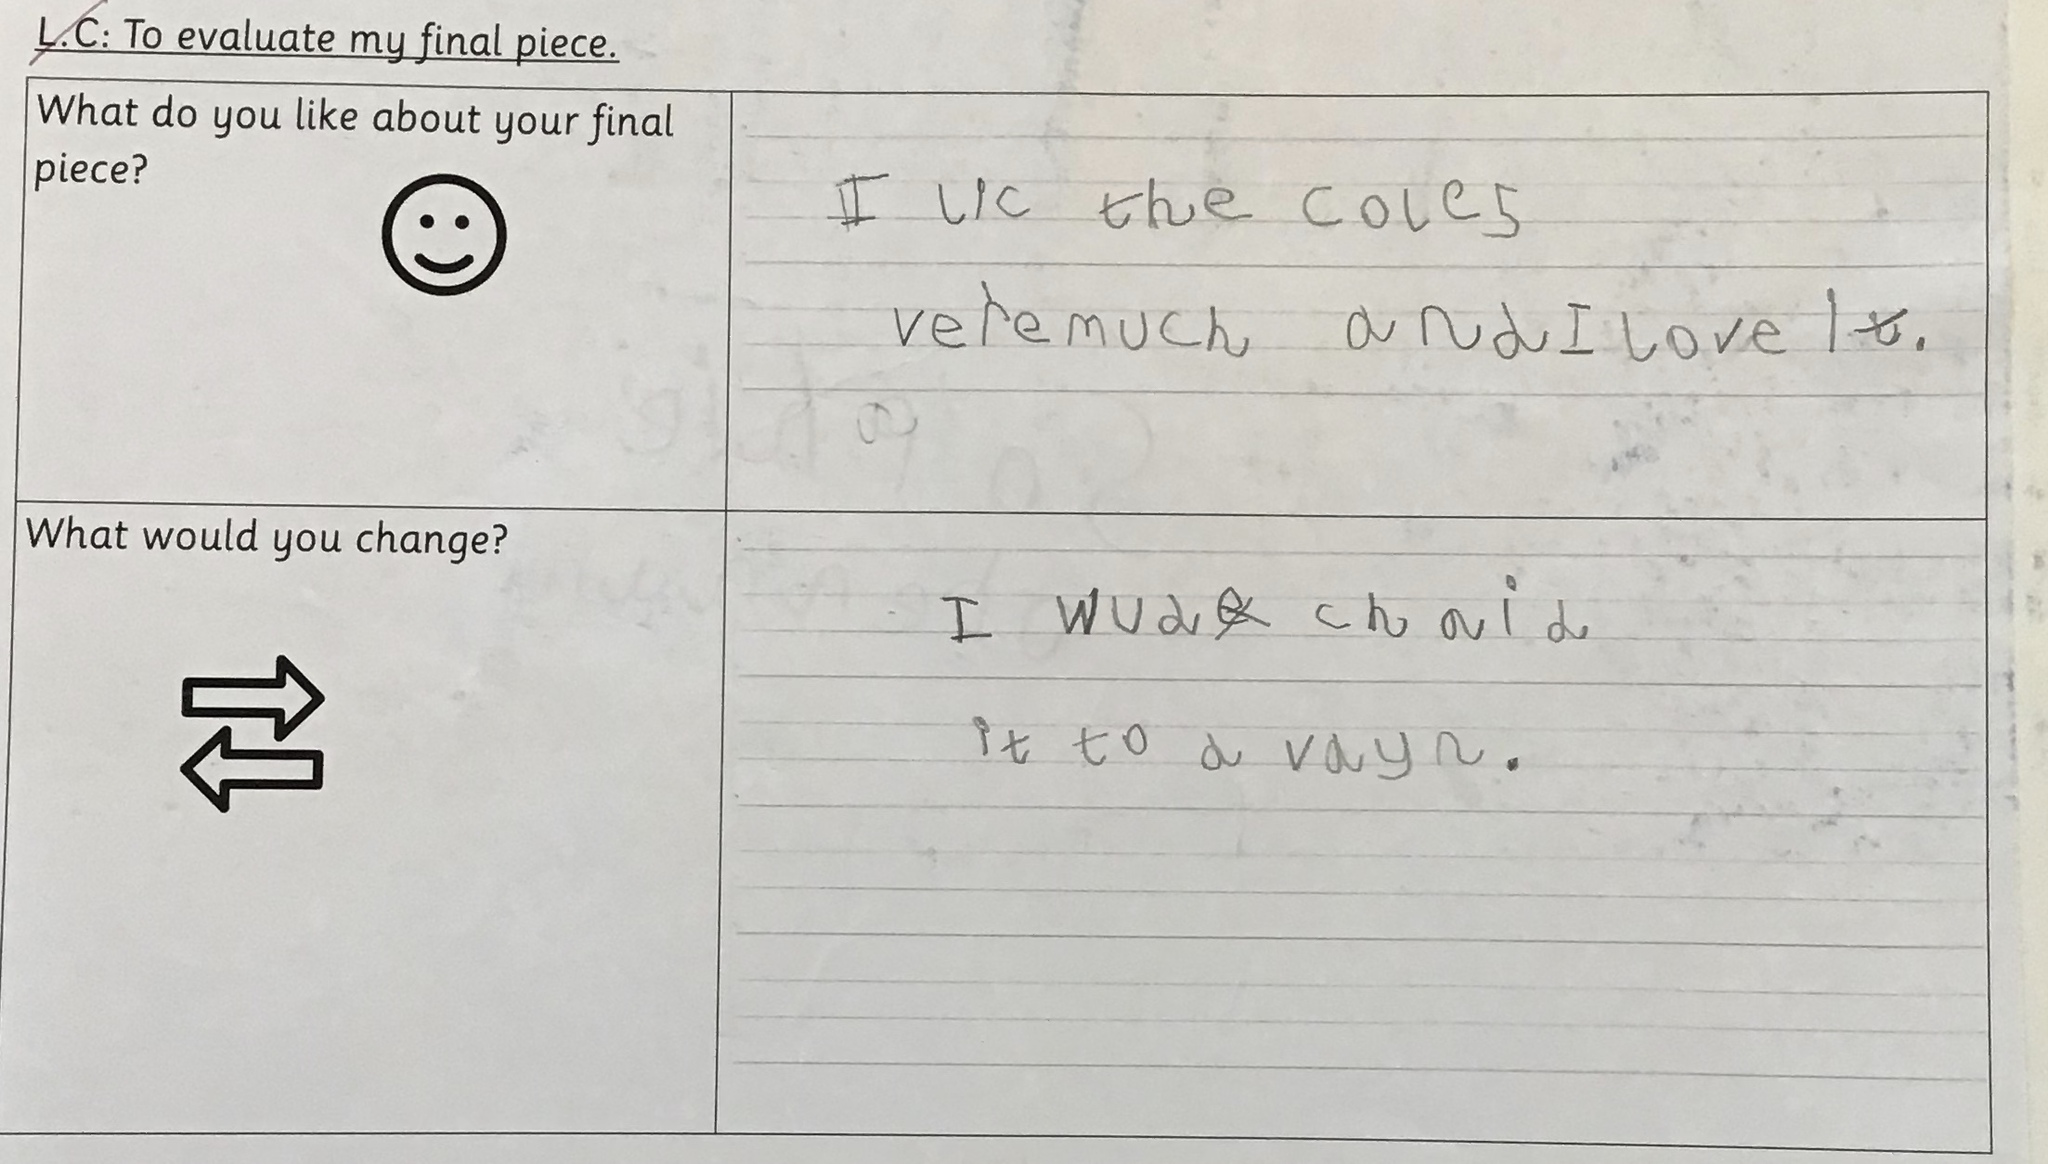 L.C: To evaluate my final piece.
What do you like about your final
piece?
I lic the coles
vere much and I love It.
What would you change?
I wud chaid
it to a vayn.